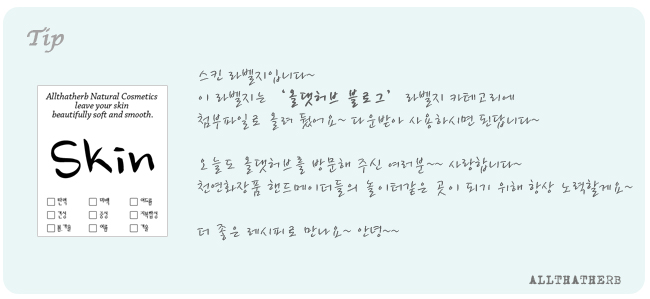 Tip
Allthatherb Natural Cosmetics
leave your skin
beautifully soft and smooth.
Skin
미백
여드름
건성
중성
지복합성
봄,가을
여름
겨울
스킨 라벨지입니다~
이 라벨지는 '올댓허브 블로그' 라벨지 카테고리에
첨부파일로 올려 뒀어요~ 다운받아 사용하시면 된답니다~
오늘도 올댓허브를 방문해 주신 여러분~~ 사랑합니다~
천연화장품 핸드메이더들의 놀이터같은 곳이 되기 위해 항상 노력할게요~
더 좋은 레시피로 만나요~ 안녕~~
ALLTHATHERB